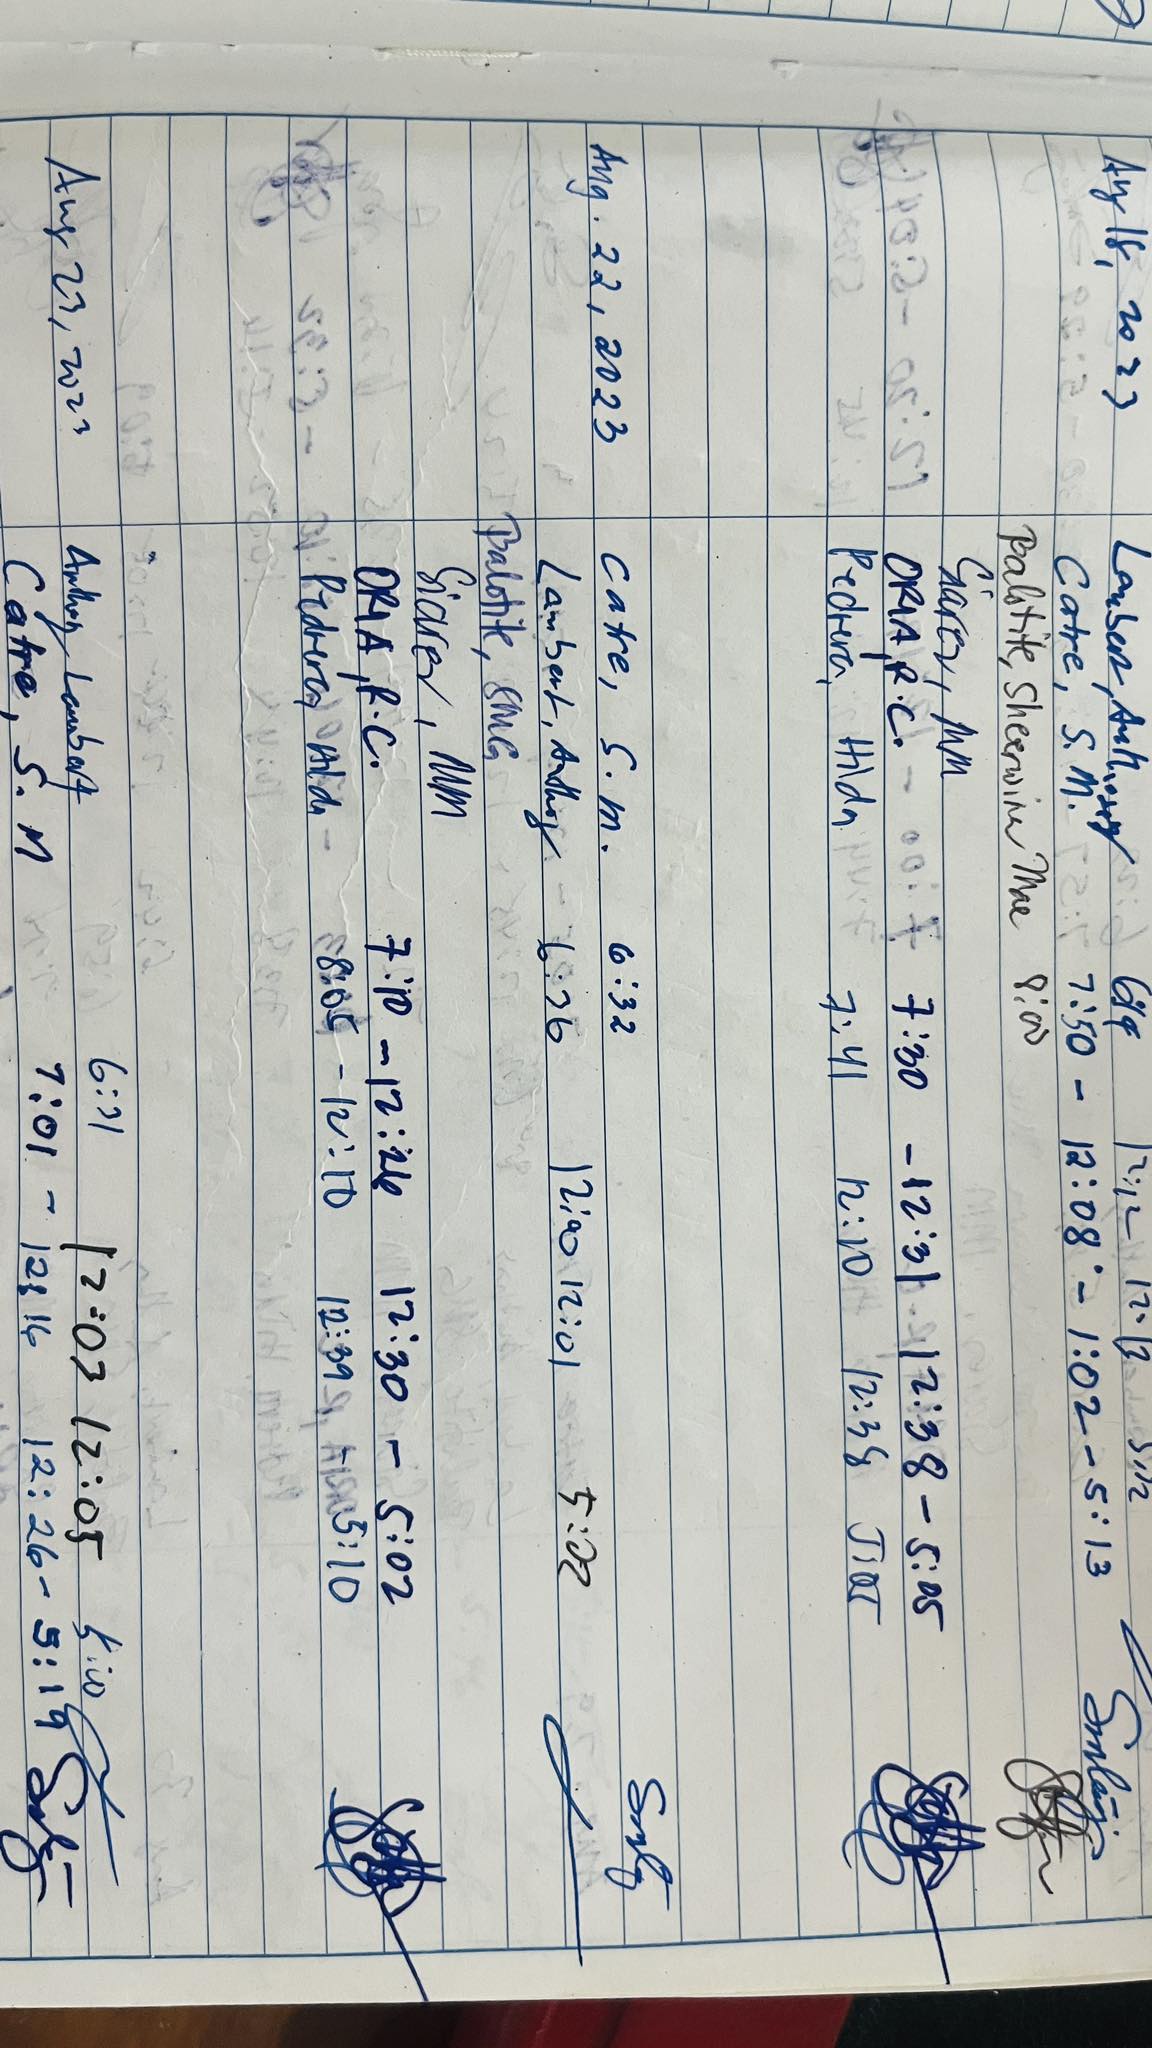 Aug 18, 2023 Lambert, Anthony 12:12 12:13 5:12
Catre, S.M. 7:50 - 12:08 - 1:02 - 5:13
Balotite, Sheerwina Mae 8:00
ORIA, R.C. 7:30 - 12:31 - 12:38 - 5:05
Pedrera, Hilda 7:41 12:10 12:39
Aug. 22, 2023 Catre, S.M. 6:32
Lambert, Anthony - 6:36 12:00 12:01 5:02
Balotite, SMG
ORIA, R.C. 7:10 - 12:26 12:30 - 5:02
Pedrera, Hilda - 8:05 - 12:10 12:39 5:10
Aug 23, 2023 Anthony Lambert 6:31 12:03 12:05 5:10
Catre, S.M 7:01 - 12:16 12:26 - 5:19